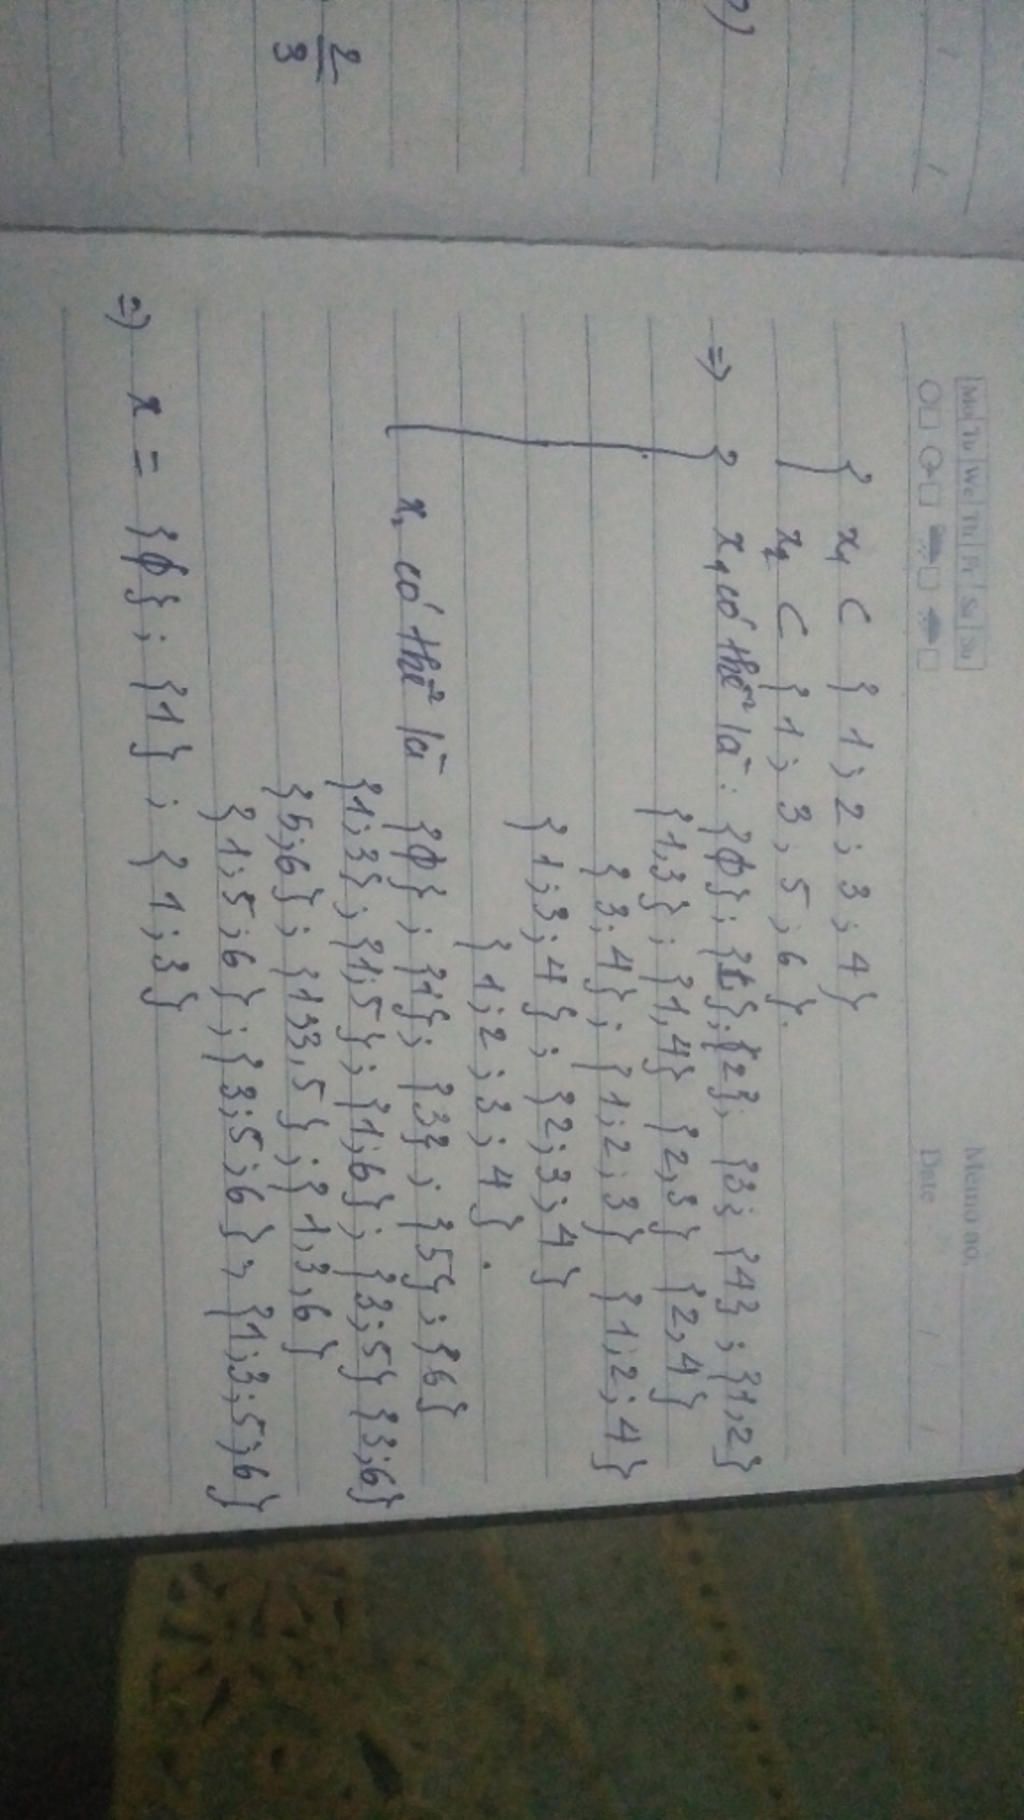 2)
2/3
Memo no.
Mo Tu We Th Fr Sa Su
Date / /
{ x₁ ⊂ { 1; 2; 3; 4}
x₂ ⊂ { 1; 3; 5; 6}.
=> { x₁ có thể là: {∅}; {1}; {2}; {3; {4}; {1,2}
{1,3}; {1,4} {2,3} {2,4}
{3;4}; {1;2;3} {1;2;4}
{1;3;4}; {2;3;4}
{1;2;3;4}.
x₂ có thể là {∅}; {1}; {3}; {5}; {6}
{1;3}; {1;5}; {1;6}; {3;5} {3;6}
{5;6}; {1;3,5}; {1,3,6}
{1;5;6}; {3;5;6}; {1;3;5;6}
=> x = {∅}; {1}; {1;3}